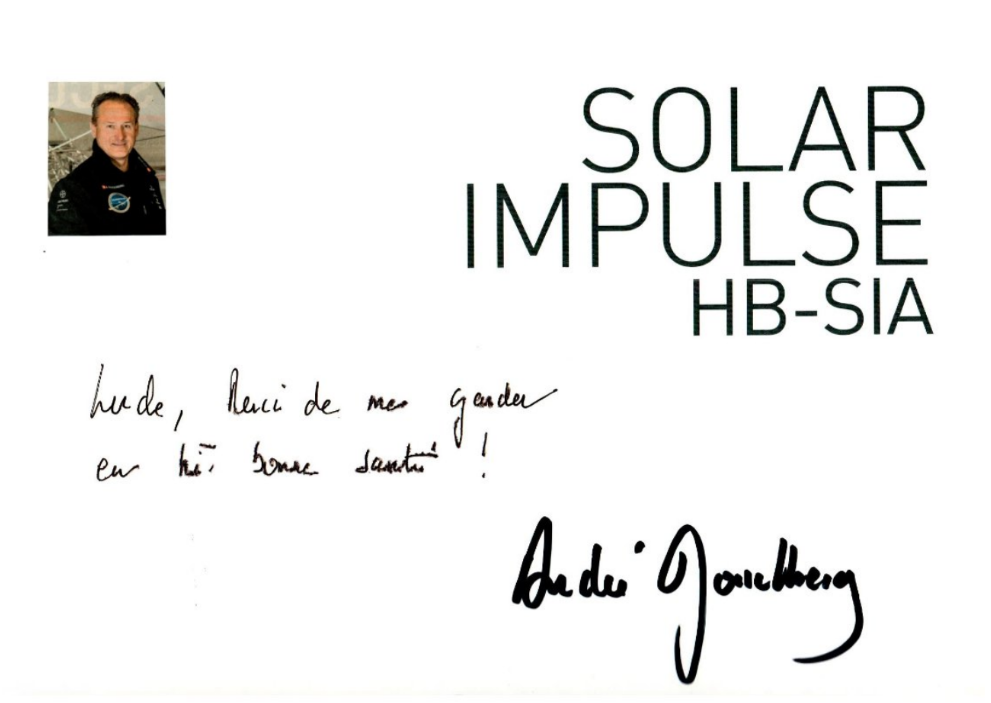 SOLAR
IMPULSE
HB-SIA
Merci de me garder
en très bonne santé !
André Borschberg